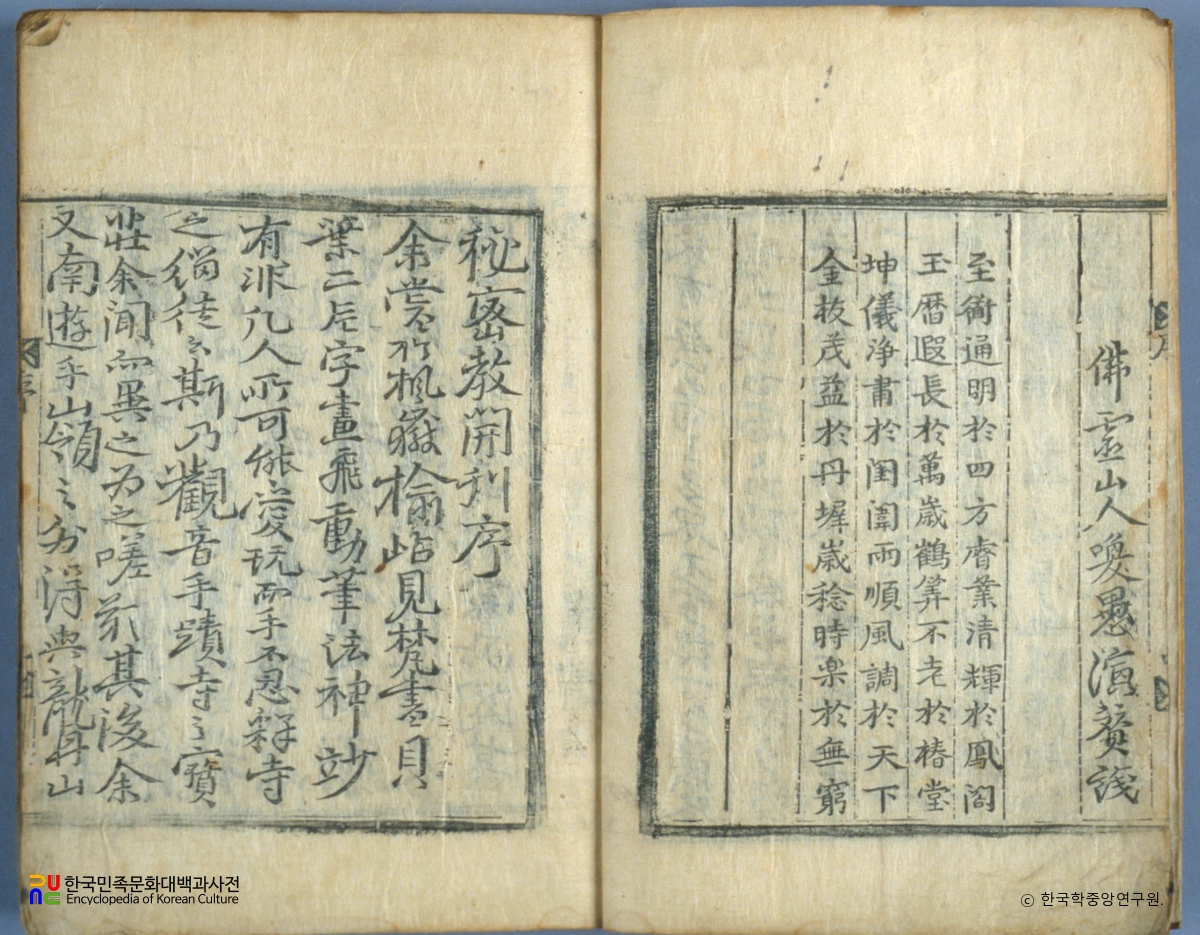 佛靈山人喚愚演賛識
至術通明於四方睿業清輝於鳳閣
玉暦遐長於萬歲鶴筭不老於椿堂
坤儀浄肅於閨闈雨順風調於天下
金枝茂益於丹墀歲稔時楽於無窮
秘密教開刊序
余嘗行楓嶽楡岾見梵書貝
葉二片字畫飛動筆法神妙
有非凡人所可能爱玩而手不忍釋寺
之緇徒云斯乃觀音手蹟寺之寶
莊余聞而異之为之嗟前其後余
又南遊乎山嶺之外淂與龍舟山
한국민족문화대백과사전
Encyclopedia of Korean Culture
ⓒ 한국학중앙연구원.